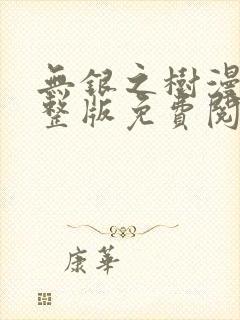 無銀之樹漫
整版免費閱
康華